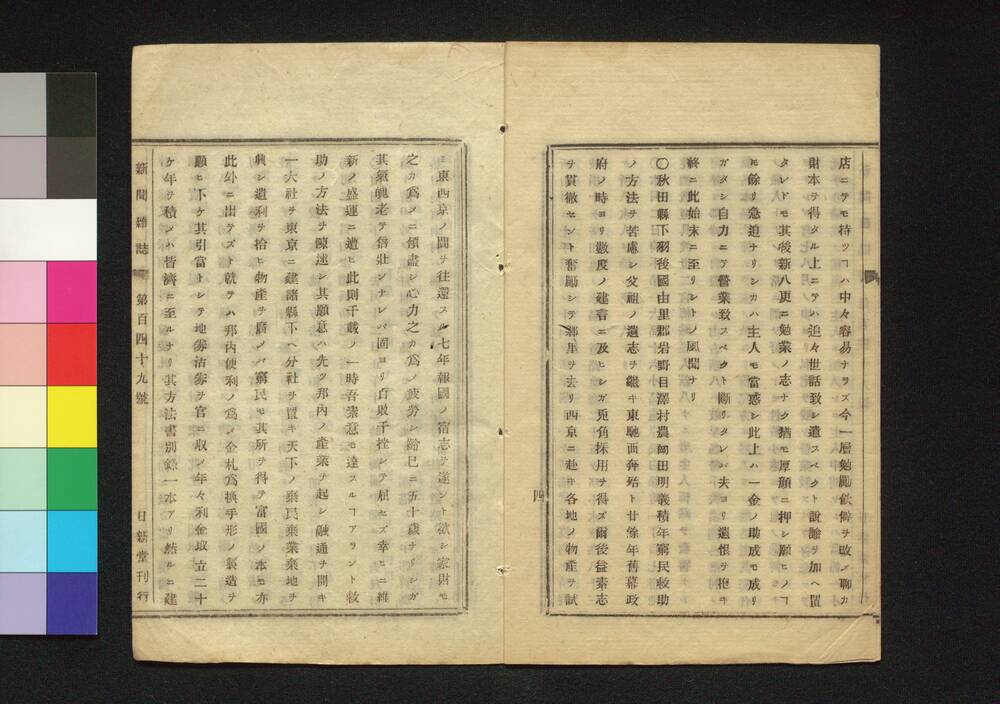 店ニテモ持ツヿハ中々容易ナラズ今一層勉勵飲興ヲ改メ聊カ
財本ヲ得タル上ニテハ追々世話致シ遣スベクト說諭ヲ加ヘ置
タレドモ其後新八更ニ勉業ノ志ナク猶モ厚顏ニ押シ願ヒノヿ
モ餘リ急迫ナリシカハ主人モ當惑シ此上ハ一金ノ助成モ成リ
ガタシ自力ニテ營業致スベクト斷リタレバ夫ヨリ遺恨ヲ抱キ
終ニ此始末ニ至リシトノ風聞ナリ
〇秋田縣下羽後國由里郡岩野目澤村農 田明義積年窮民救助
ノ方法ヲ苦慮シ父祖ノ遺志ヲ繼キ東馳西奔殆ト廿餘年舊幕政
府ノ時ヨリ數度ノ建言ニ及ヒシガ兎角採用ヲ得ズ爾後益素志
ヲ貫徹セント奮勵シテ鄕里ヲ去リ西京ニ赴キ各地ノ物產ヲ試
四
ミ東西京ノ間ヲ往還スル七年報國ノ宿志ヲ遂ント欲シ家財モ
之カ爲メニ傾盡シ心力之カ爲メ疲勞シ齡已ニ五十歲ナリシガ
其氣魄老テ倍壯ンナレバ固ヨリ百敗千挫シテ屈セズ幸ヒニ維
新ノ盛運ニ遭ヒ此則千載ノ一時吾素意モ達スルヿアラント救
助ノ方法ヲ陳述シ其願意ハ先ツ邦內ノ產業ヲ起シ融通ヲ開キ
一大社ヲ東京ニ建諸縣下ヘ分社ヲ置キ天下ノ棄民棄業棄地ヲ
興シ遺利ヲ拾ヒ物產ヲ廣メバ窮民モ其所ヲ得テ富國ノ本モ亦
此外ニ出テズト就テハ邦內便利ノ爲メ金札爲換手形ノ製造ヲ
願ヒ下ケ其引當トシテ地券沽券ヲ官ニ取メ年々利金取立二十
ケ年ヲ積メハ皆濟ニ至ルナリ其方法書別錄一本アリ然ルニ建
新聞雜誌 第百四十九號 日新堂刊行